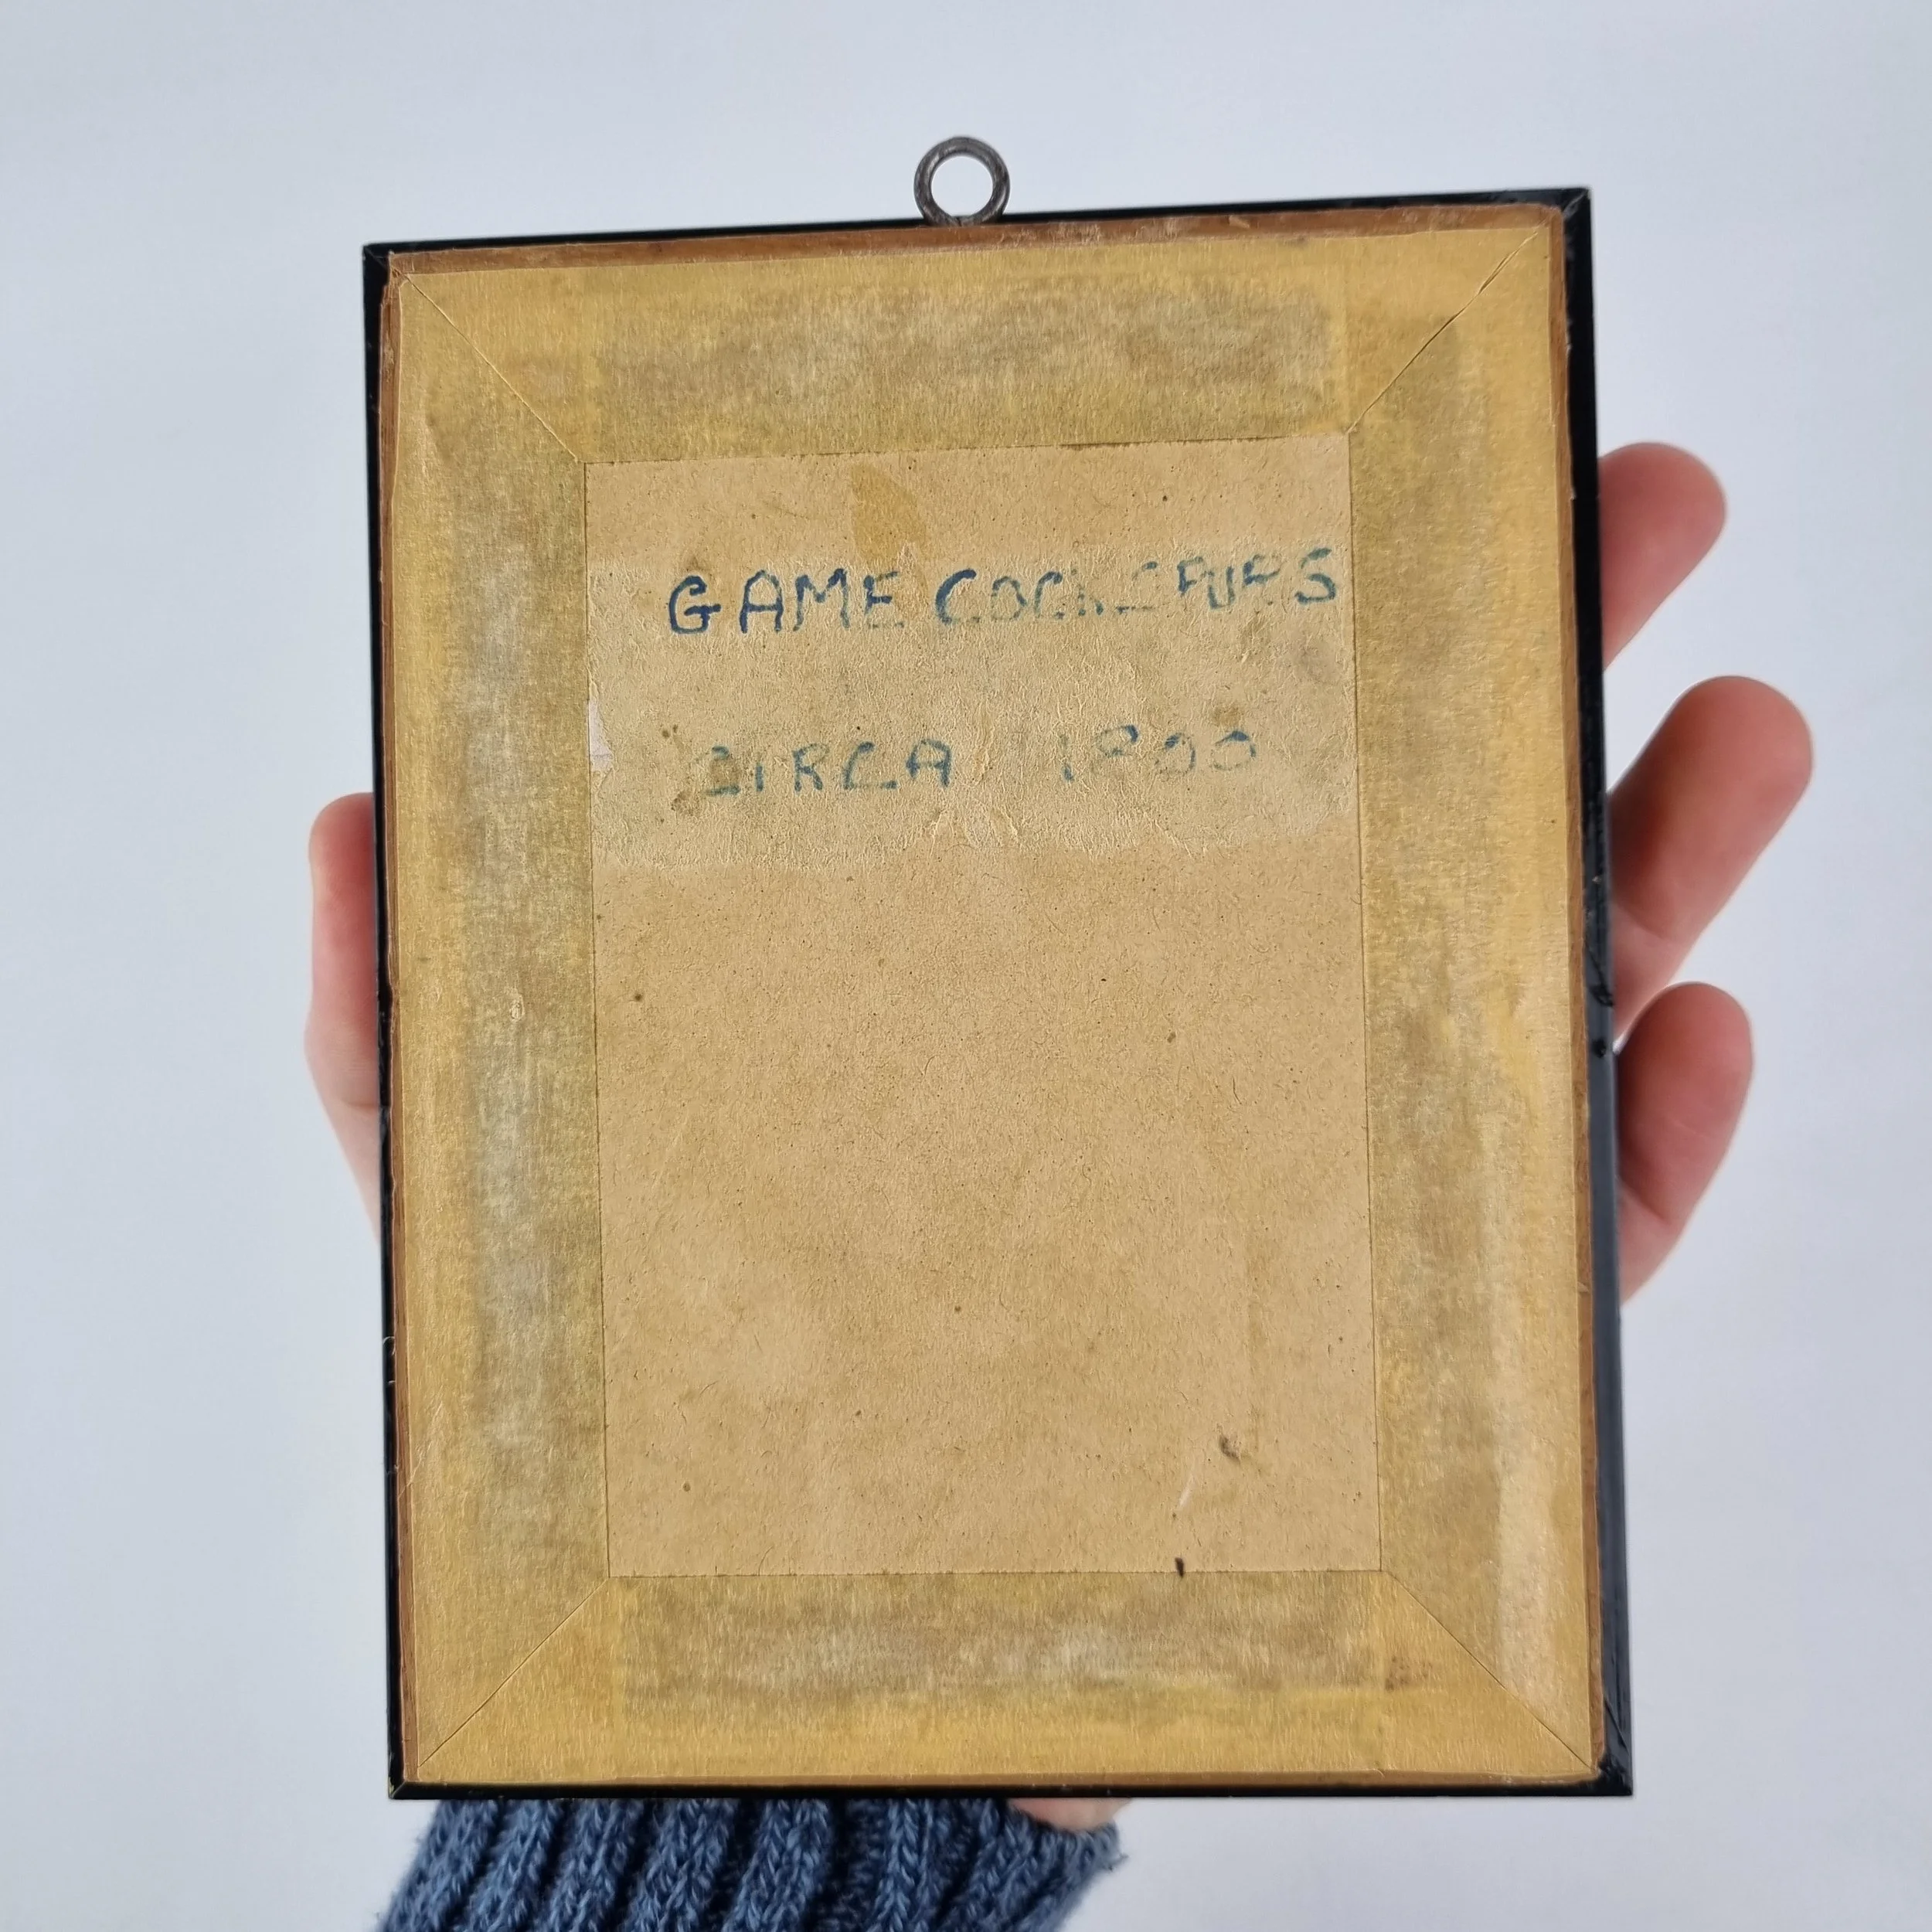 GAME COCK SPURS
CIRCA 1800